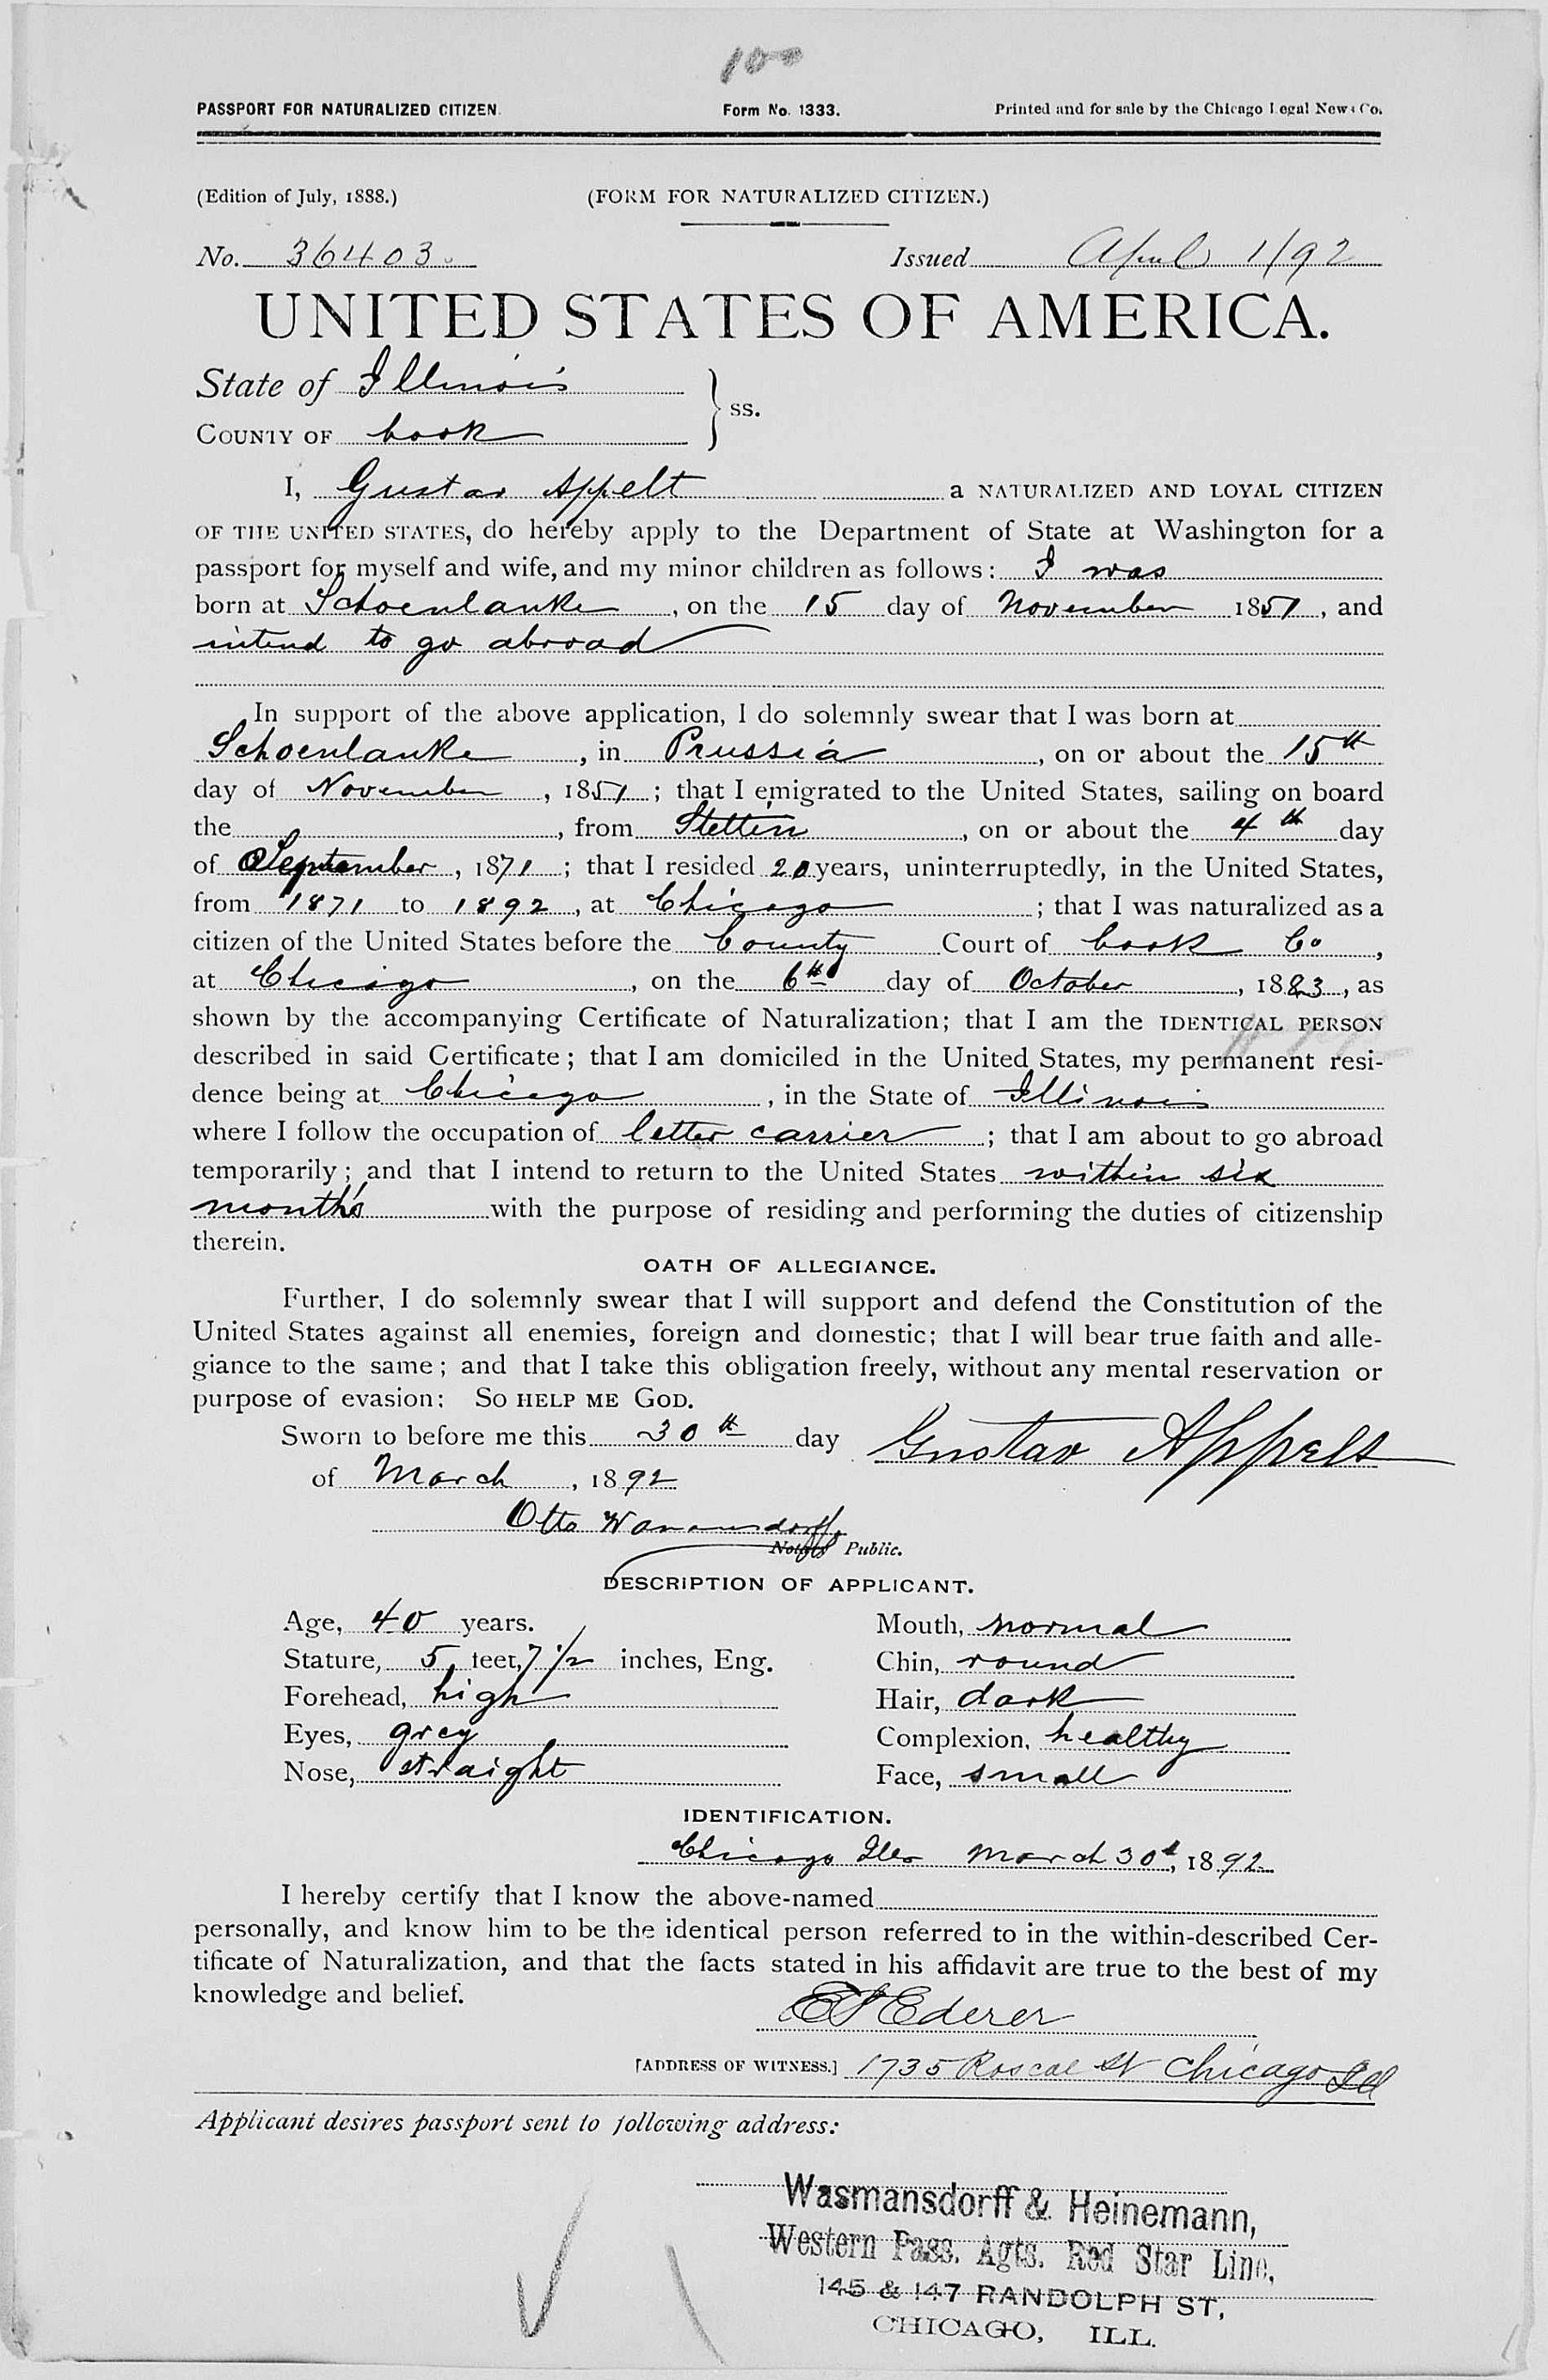 100
PASSPORT FOR NATURALIZED CITIZEN. Form No. 1333. Printed and for sale by the Chicago Legal News Co.
(Edition of July, 1888.) (FORM FOR NATURALIZED CITIZEN.)
No. 36403. Issued April 1/92
UNITED STATES OF AMERICA.
State of Illinois
COUNTY OF Cook } ss.
I, Gustav Appelt a NATURALIZED AND LOYAL CITIZEN
OF THE UNITED STATES, do hereby apply to the Department of State at Washington for a
passport for myself and wife, and my minor children as follows: I was
born at Schoenlanke, on the 15 day of November 1851, and
intend to go abroad
In support of the above application, I do solemnly swear that I was born at
Schoenlanke, in Prussia, on or about the 15th
day of November, 1851; that I emigrated to the United States, sailing on board
the , from Stettin, on or about the 4th day
of September, 1871; that I resided 20 years, uninterruptedly, in the United States,
from 1871 to 1892, at Chicago; that I was naturalized as a
citizen of the United States before the County Court of Cook Co,
at Chicago, on the 6th day of October, 1883, as
shown by the accompanying Certificate of Naturalization; that I am the IDENTICAL PERSON
described in said Certificate; that I am domiciled in the United States, my permanent resi-
dence being at Chicago, in the State of Illinois
where I follow the occupation of letter carrier; that I am about to go abroad
temporarily; and that I intend to return to the United States within six
months with the purpose of residing and performing the duties of citizenship
therein.
OATH OF ALLEGIANCE.
Further, I do solemnly swear that I will support and defend the Constitution of the
United States against all enemies, foreign and domestic; that I will bear true faith and alle-
giance to the same; and that I take this obligation freely, without any mental reservation or
purpose of evasion: SO HELP ME GOD.
Sworn to before me this 30th day Gustav Appelt
of March, 1892
Otto Wasmansdorff
Notary Public.
DESCRIPTION OF APPLICANT.
Age, 40 years. Mouth, normal
Stature, 5 feet, 7 1/2 inches, Eng. Chin, round
Forehead, high Hair, dark
Eyes, grey Complexion, healthy
Nose, straight Face, small
IDENTIFICATION.
Chicago Ills March 30th, 1892
I hereby certify that I know the above-named
personally, and know him to be the identical person referred to in the within-described Cer-
tificate of Naturalization, and that the facts stated in his affidavit are true to the best of my
knowledge and belief.
Ederer
[ADDRESS OF WITNESS.] 1735 Roscoe St Chicago Ill
Applicant desires passport sent to following address:
Wasmansdorff & Heinemann,
Western Pass. Agts. Red Star Line,
145 & 147 RANDOLPH ST,
CHICAGO, ILL.